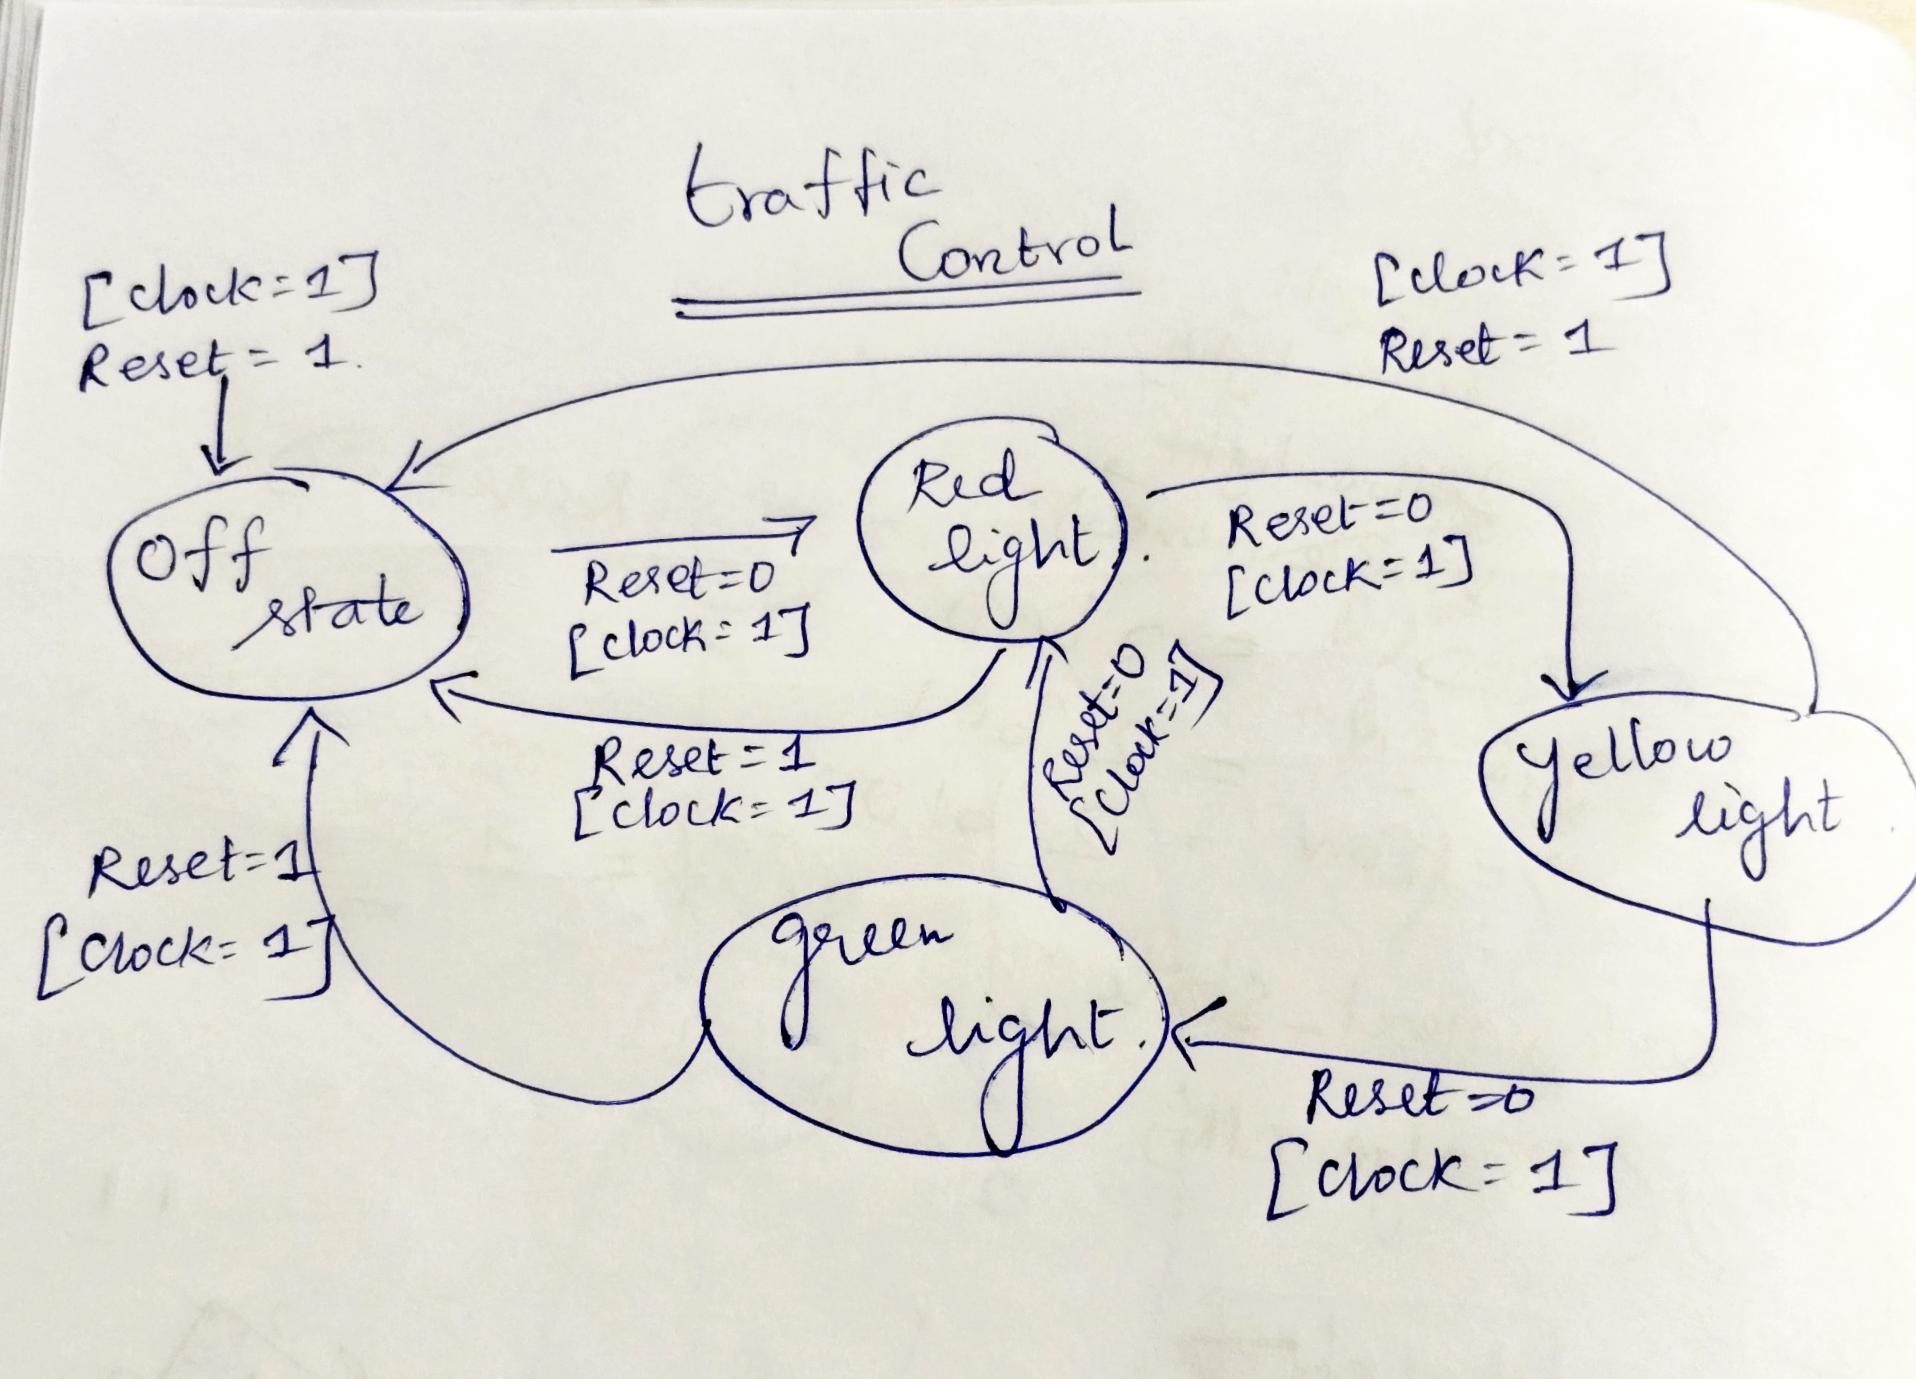 traffic
Control
[clock=1]
Reset=1.
[clock=1]
Reset=1
Off
state
Reset=0
[clock=1]
Red
light.
Reset=0
[clock=1]
Reset=1
[clock=1]
Reset=0
[clock=1]
Yellow
light
Reset=1
[clock=1]
green
light.
Reset=0
[clock=1]